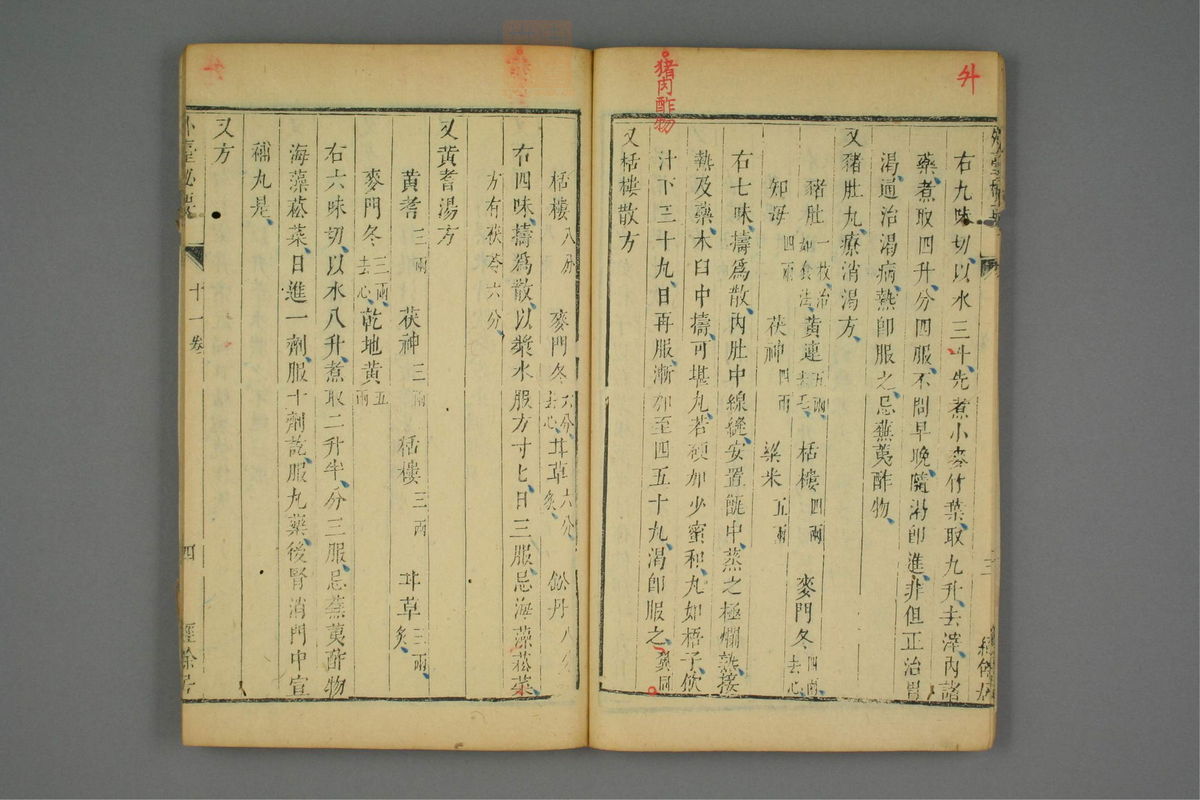 外
猪肉酢物
右九味切以水三斗先煮小麥竹葉取九升去滓內諸
藥煮取四升分四服不問早晚隨渴即進非但正治胃
渴通治渴病熱即服之忌蕪荑酢物
又豬肚丸療消渴方
豬肚一枚治如食法 黃連五兩去毛 栝樓四兩 麥門冬四兩去心
知母四兩 茯神四兩 粱米五兩
右七味擣爲散內肚中線縫安置甑中蒸之極爛熟接
熱及藥木臼中擣可堪丸若硬加少蜜和丸如梧子飲
汁下三十丸日再服漸加至四五十丸渴即服之
又栝樓散方
三
經餘居
栝樓八分 麥門冬六分去心 甘草六分炙 鉛丹八分
右四味擣爲散以漿水服方寸匕日三服忌海藻菘菜
方有茯苓六分
又黃耆湯方
黃耆三兩 茯神三兩 栝樓三兩 甘草三兩炙
麥門冬三兩去心 乾地黃五兩
右六味切以水八升煮取二升半分三服忌蕪荑酢物
海藻菘菜日進一劑服十劑訖服丸藥後腎消門中宣
補丸是
又方
外臺祕要
十一卷
四
經餘居